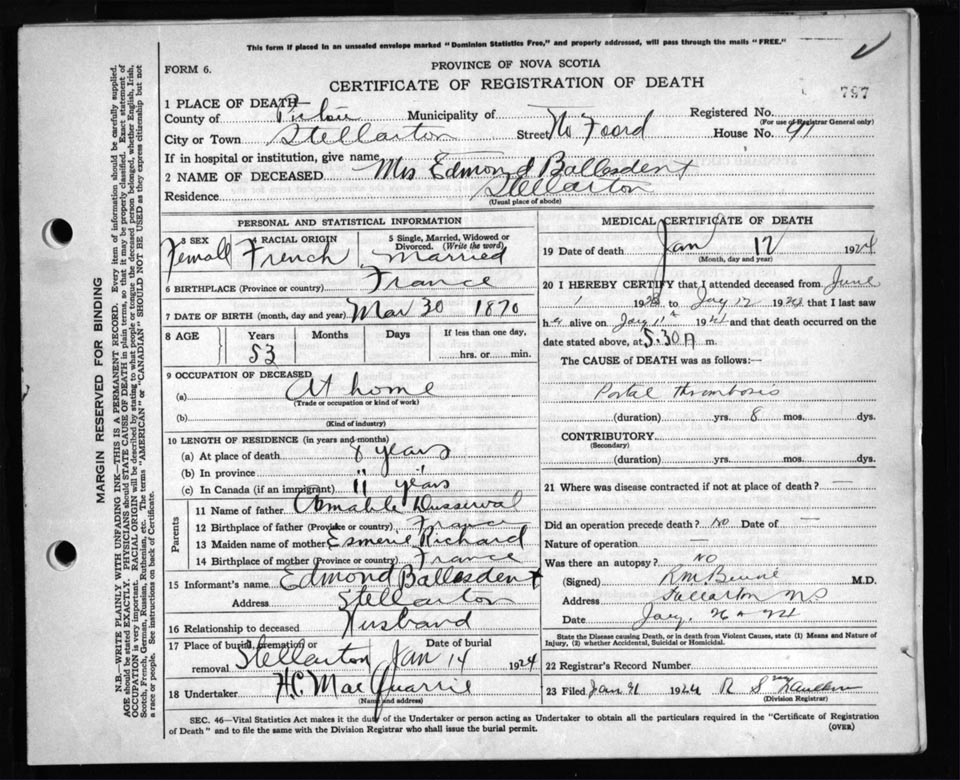 This form if placed in an unsealed envelope marked "Dominion Statistics Free," and properly addressed, will pass through the mails "FREE."
FORM 6.
PROVINCE OF NOVA SCOTIA
CERTIFICATE OF REGISTRATION OF DEATH
797
1 PLACE OF DEATH—
County of Pictou Municipality of Registered No.
(For use of Registrar General only)
City or Town Stellarton Street No Foord House No. 91
If in hospital or institution, give name
2 NAME OF DECEASED Mrs Edmond Ballesdent
Residence Stellarton
(Usual place of abode)
PERSONAL AND STATISTICAL INFORMATION
3 SEX Femall
4 RACIAL ORIGIN French
5 Single, Married, Widowed or Divorced. (Write the word) Married
6 BIRTHPLACE (Province or country) France
7 DATE OF BIRTH (month, day and year) Mar 30 1870
8 AGE Years 53 Months Days If less than one day, hrs. or min.
9 OCCUPATION OF DECEASED
(a) At home
(Trade or occupation or kind of work)
(b)
(Kind of industry)
10 LENGTH OF RESIDENCE (in years and months)
(a) At place of death 8 years
(b) In province " "
(c) In Canada (if an immigrant) 11 years
Parents
11 Name of father Amable
12 Birthplace of father (Province or country) France
13 Maiden name of mother Esmerie Richard
14 Birthplace of mother (Province or country) France
15 Informant's name Edmond Ballesdent
Address Stellarton
16 Relationship to deceased Husband
17 Place of burial, cremation or removal Stellarton Date of burial Jan 14 1924
18 Undertaker H.C. MacQuarrie
(Name and address)
MEDICAL CERTIFICATE OF DEATH
19 Date of death Jan 12 1924
(Month, day and year)
20 I HEREBY CERTIFY that I attended deceased from June
1 1923 to Jany 12 1924 that I last saw
h er alive on Jany 11th 1924 and that death occurred on the
date stated above, at 5.30 m.
The CAUSE of DEATH was as follows:—
Portal thrombosis
(duration) yrs. 8 mos. dys.
CONTRIBUTORY
(Secondary)
(duration) yrs. mos. dys.
21 Where was disease contracted if not at place of death? —
Did an operation precede death? No Date of —
Nature of operation —
Was there an autopsy? No
(Signed) R M M.D.
Address Stellarton N.S
Date Jany. 26 24
State the Disease causing Death, or in death from Violent Causes, state (1) Means and Nature of Injury, (2) whether Accidental, Suicidal or Homicidal.
22 Registrar's Record Number
23 Filed Jan 1924 R S
(Division Registrar)
SEC. 46—Vital Statistics Act makes it the duty of the Undertaker or person acting as Undertaker to obtain all the particulars required in the "Certificate of Registration
of Death" and to file the same with the Division Registrar who shall issue the burial permit.
(OVER)
MARGIN RESERVED FOR BINDING
N.B.—WRITE PLAINLY WITH UNFADING INK—THIS IS A PERMANENT RECORD. Every item of information should be carefully supplied.
AGE should be stated EXACTLY. PHYSICIANS should STATE CAUSE OF DEATH in plain terms, so that it may be properly classified. Exact statement of
OCCUPATION is very important. RACIAL ORIGIN will be described by stating to what people or tongue the deceased person belonged, whether English, Irish,
Scotch, French, German, Russian, Ruthenian, etc. The terms "AMERICAN" or "CANADIAN" SHOULD NOT BE USED as they express citizenship but not
a race or people. See instructions on back of Certificate.